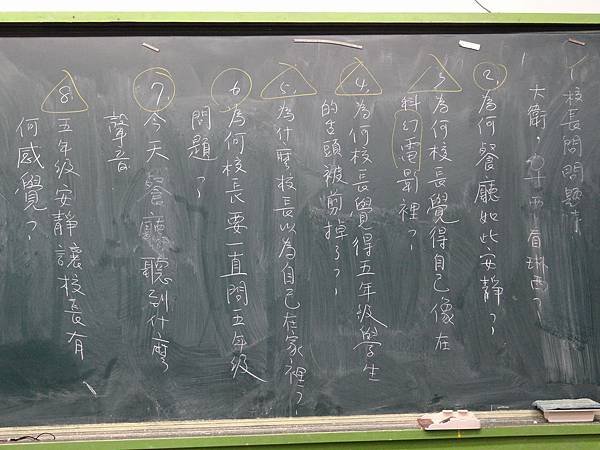 1.校長問問題時
大衛,看琳西?
2.為何餐廳如此安靜?
3.為何校長覺得自己像在
科幻電影裡?
4.為何校長覺得五年級學生
的舌頭被剪掉了?
5.為什麼校長以為自己在家裡?
6.為何校長要一直問五年級
問題?
7.今天餐廳聽到什麼
聲音
8.五年級安靜讓校長有
何感覺?